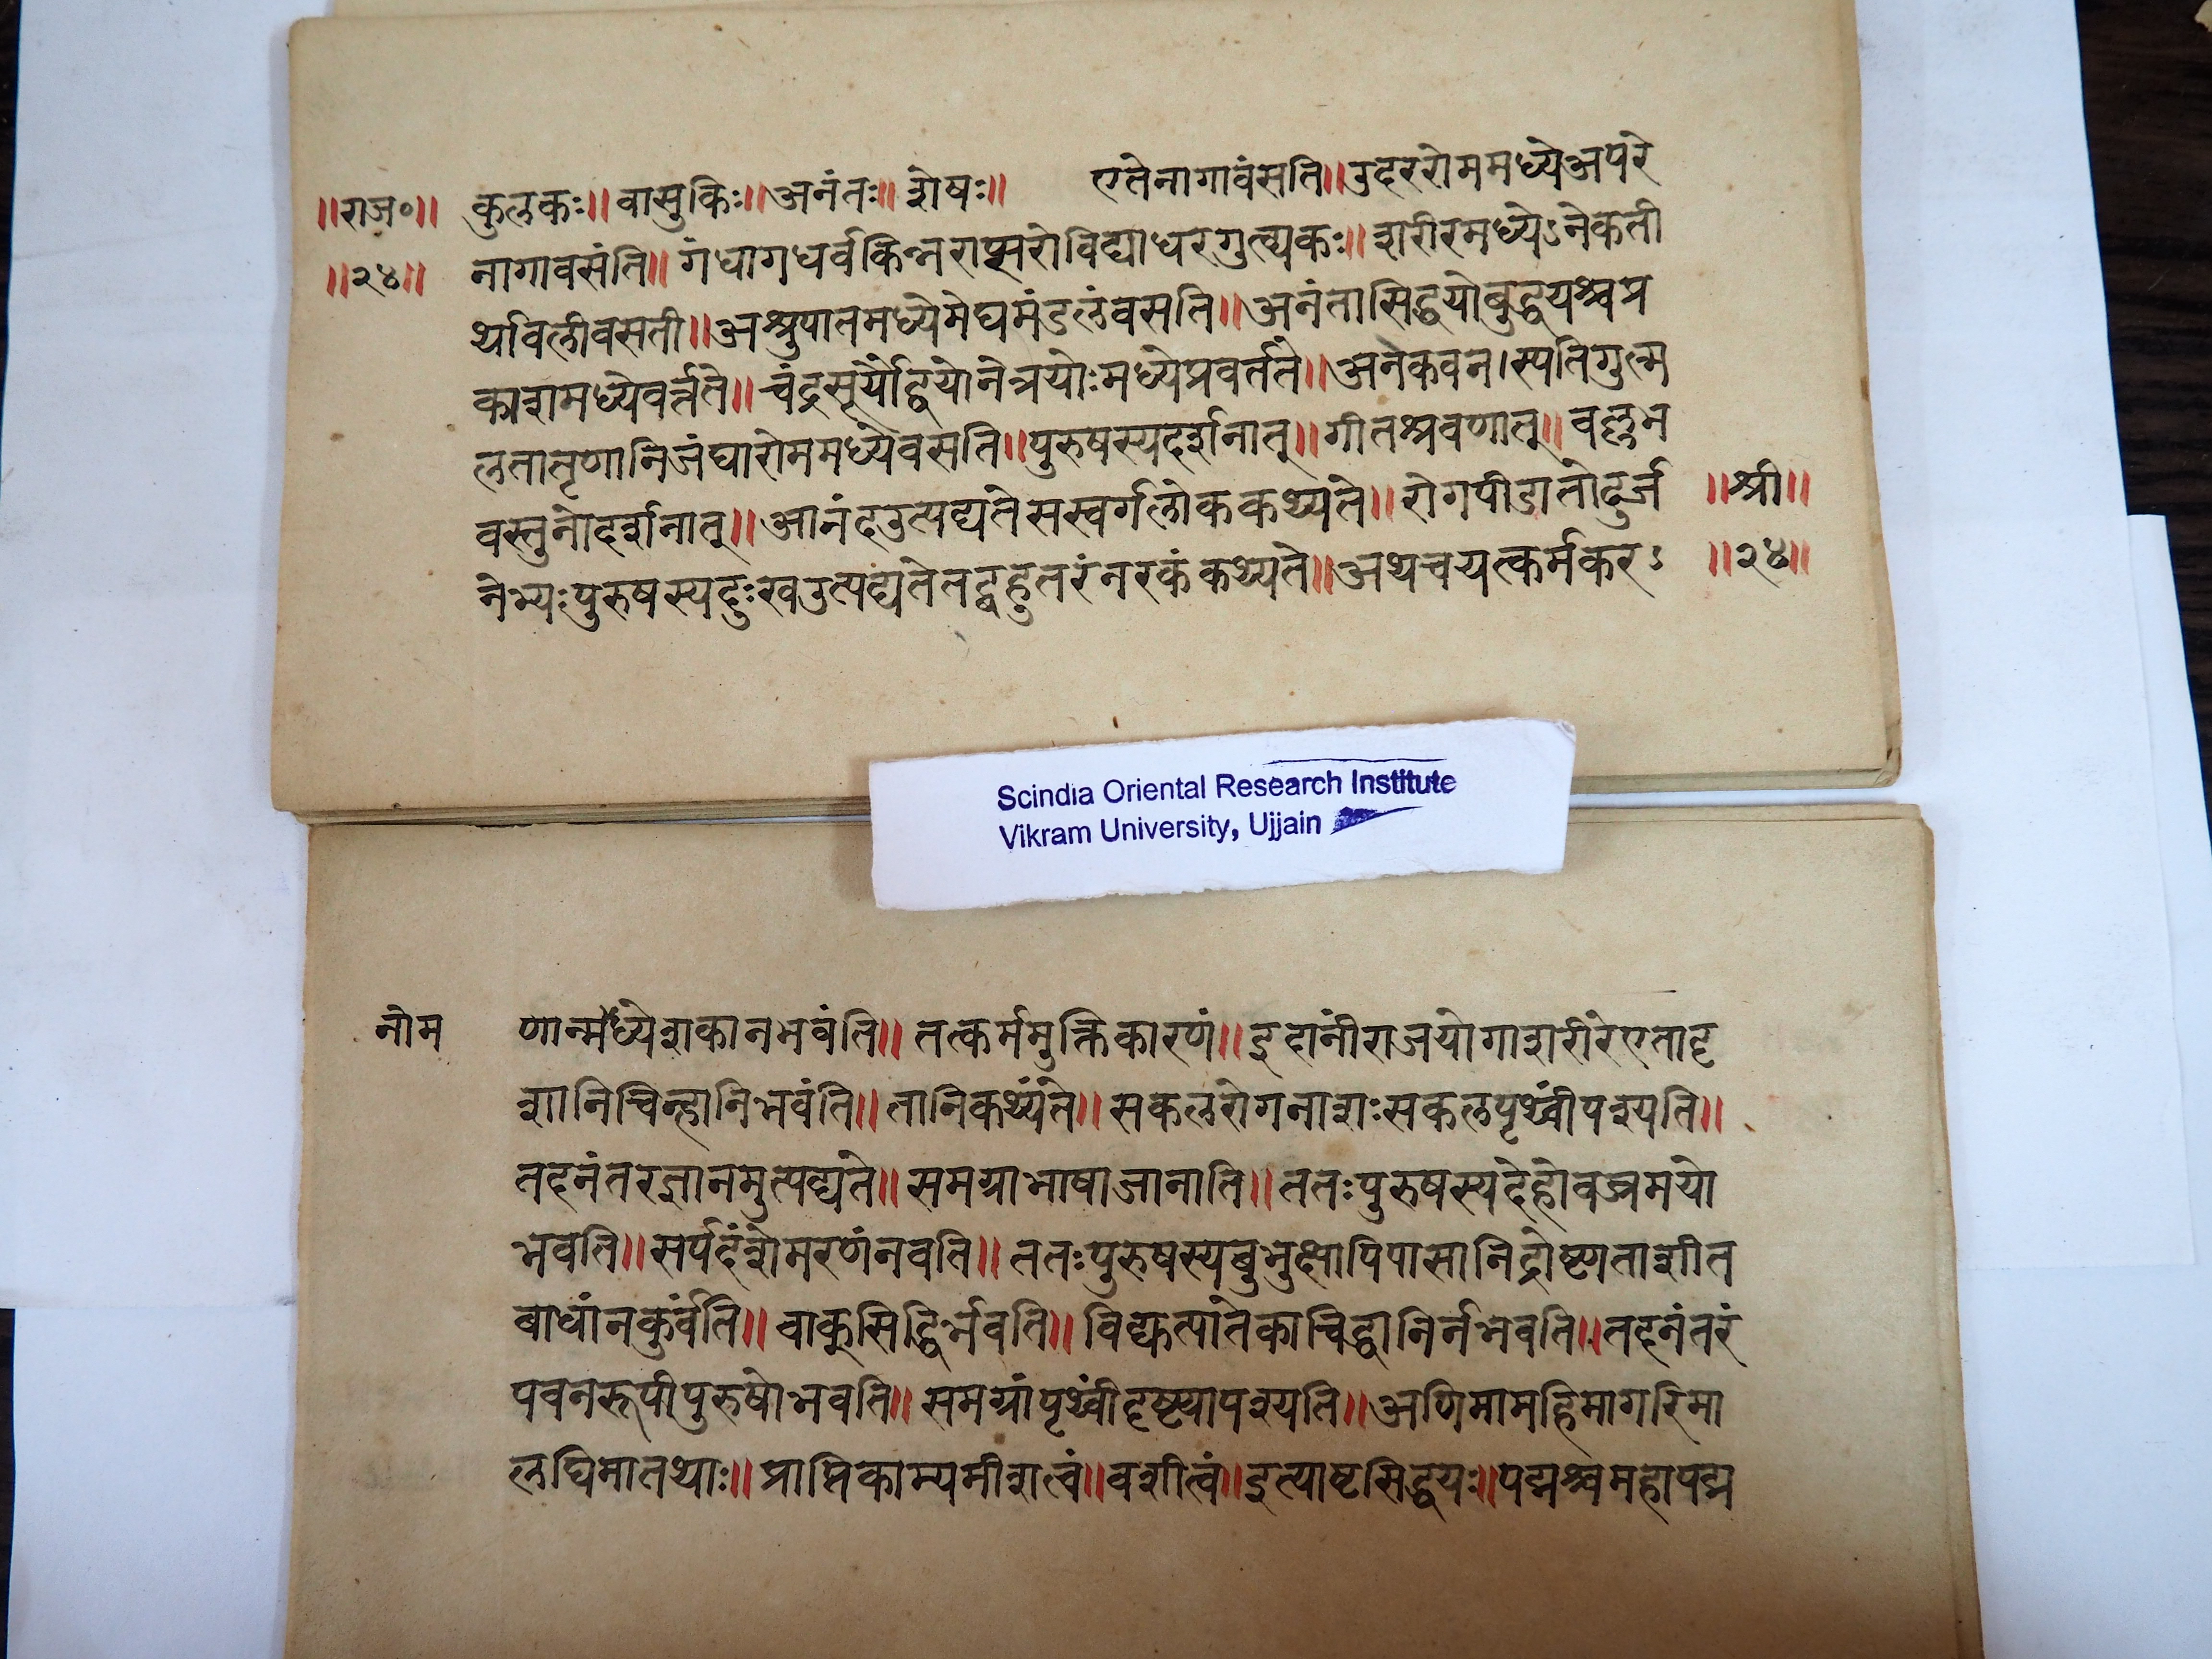 ॥राज०॥ कुलकः॥ वासुकिः॥अनंतः॥ शेषः॥ एतेनागावंसति॥उदररोममध्येअपरे
॥२४॥ नागावसंति॥ गंधागधर्वकिन्नराप्सरोविद्याधरगुल्यकः॥ शरीरमध्येऽनेकती
र्थावलीवसती॥अश्रुपातमध्येमेघमंडलंवसति॥अनंतासिद्धयोबुद्धयश्चप्र
काशमध्येवर्त्तते॥ चंद्रसूर्यौद्वियोनेत्रयोःमध्येप्रवर्तते॥अनेकवन।स्पतिगुल्म
लतातृणानिजंघारोममध्येवसति॥पुरुषस्यदर्शनात्॥गीतश्रवणात्॥ वल्लभ
वस्तुनोदर्शनात्॥ आनंदउत्पद्यतेसस्वर्गलोककथ्यते॥ रोगपीडातोदुर्ज ॥श्री॥
नेभ्यःपुरुषस्यदुःखउत्पद्यतेतद्बहुतरंनरकंकथ्यते॥अथचयत्कर्मकरऽ ॥२४॥
Scindia Oriental Research Institute
Vikram University, Ujjain
नोम णान्मध्येशकानभवंति॥ तत्कर्ममुक्तिकारणं॥ इदानींराजयोगाशरीरेएतादृ
शानिचिन्हानिभवंति॥तानिकथ्यंते॥ सकलरोगनाशःसकलपृथ्वींपश्यति॥
तदनंतरज्ञानमुत्पद्यते॥ समग्राभाषाजानाति॥ ततःपुरुषस्यदेहोवज्रमयो
भवति॥सर्पदंशेमरणंनवति॥ ततःपुरुषस्यबुभुक्षापिपासानिद्रोष्णताशीत
बाधांनकुर्वंति॥ वाक्सिद्धिर्भवति॥ विद्युत्पातेकाचिद्धानिर्नभवति॥तदनंतरं
पवनरूपीपुरुषोभवति॥ समग्रांपृथ्वींदृष्ट्यापश्यति॥अणिमामहिमागरिमा
लघिमातथाः॥ प्राप्तिकाम्यमीशत्वं॥वशीत्वं॥इत्याष्टसिद्धयः॥पद्मश्चमहापद्म